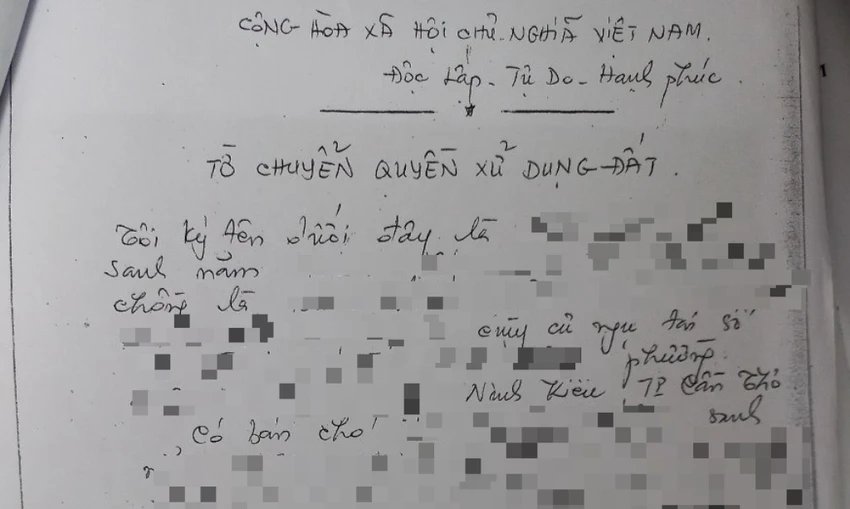 CỘNG HÒA XÃ HỘI CHỦ NGHĨA VIỆT NAM.
Độc Lập - Tự Do - Hạnh phúc.
TỜ CHUYỂN QUYỀN XỬ DỤNG ĐẤT.
Tôi ký tên dưới đây là
sanh năm
chồng là
cùng cử ngụ tại số
phường
Ninh Kiều TP Cần Thơ
sanh
, Có bán cho
1